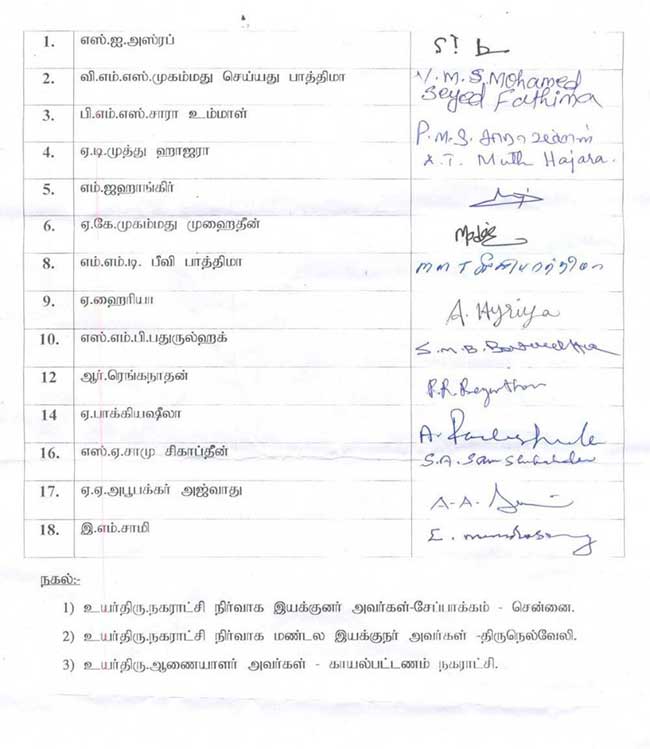 1. எஸ்.ஐ.அஸ்ரப்
2. வி.எம்.எஸ்.முகம்மது செய்யது பாத்திமா V.M.S.Mohamed
Seyed Fathima
3. பி.எம்.எஸ்.சாரா உம்மாள் P.M.S. சாரா உம்மாள்
4. ஏ.டி.முத்து ஹாஜரா A.T. Muth Hajara.
5. எம்.ஜஹாங்கிர்
6. ஏ.கே.முகம்மது முஹைதீன்
8. எம்.எம்.டி. பீவி பாத்திமா M M T பீவி பாத்திமா
9. ஏ.ஹைரியா A. Hyriya
10. எஸ்.எம்.பி.பதுருல்ஹக் S.M.B.
12 ஆர்.ரெங்கநாதன்
14 ஏ.பாக்கியஷீலா A.
16. எஸ்.ஏ.சாமு சிகாப்தீன் S.A.
17. ஏ.ஏ.அபூபக்கர் அஜ்வாது A-A.
18. இ.எம்.சாமி E.
நகல்:-
1) உயர்திரு.நகராட்சி நிர்வாக இயக்குனர் அவர்கள்-சேப்பாக்கம் - சென்னை.
2) உயர்திரு.நகராட்சி நிர்வாக மண்டல இயக்குநர் அவர்கள் -திருநெல்வேலி.
3) உயர்திரு.ஆணையாளர் அவர்கள் - காயல்பட்டணம் நகராட்சி.